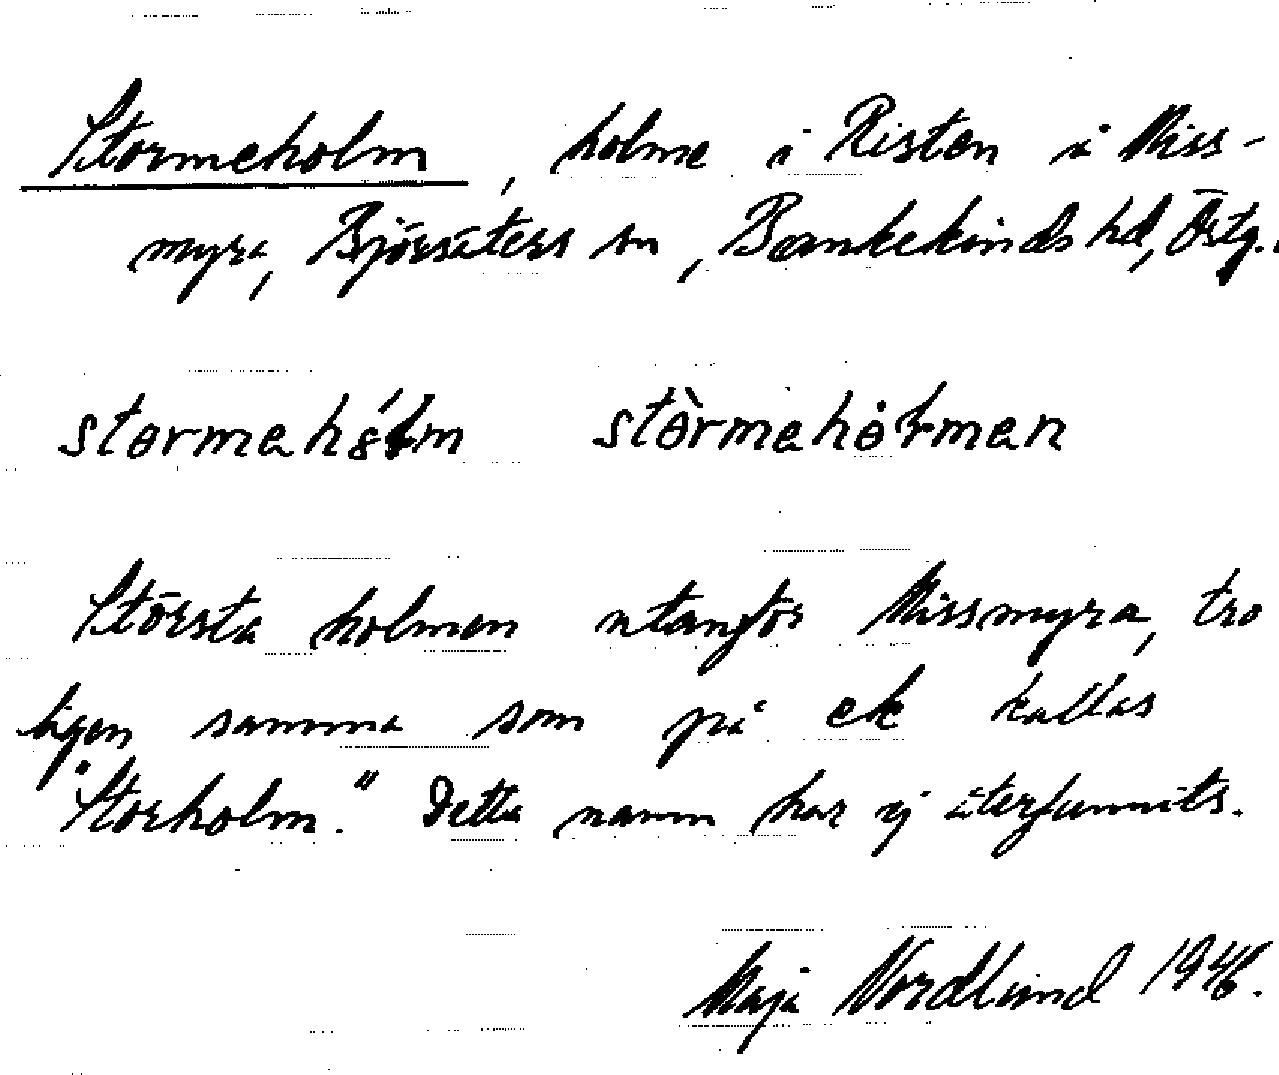 Stormeholm, holme i Risten å Miss-
myra, Björsäters sn, Bankekinds hd, Östg.
Största holmen utanför Missmyra, tro
ligen samma som på ek kallas
"Storholm." Detta namn har ej återfunnits.
Maja Nordlund 1946.